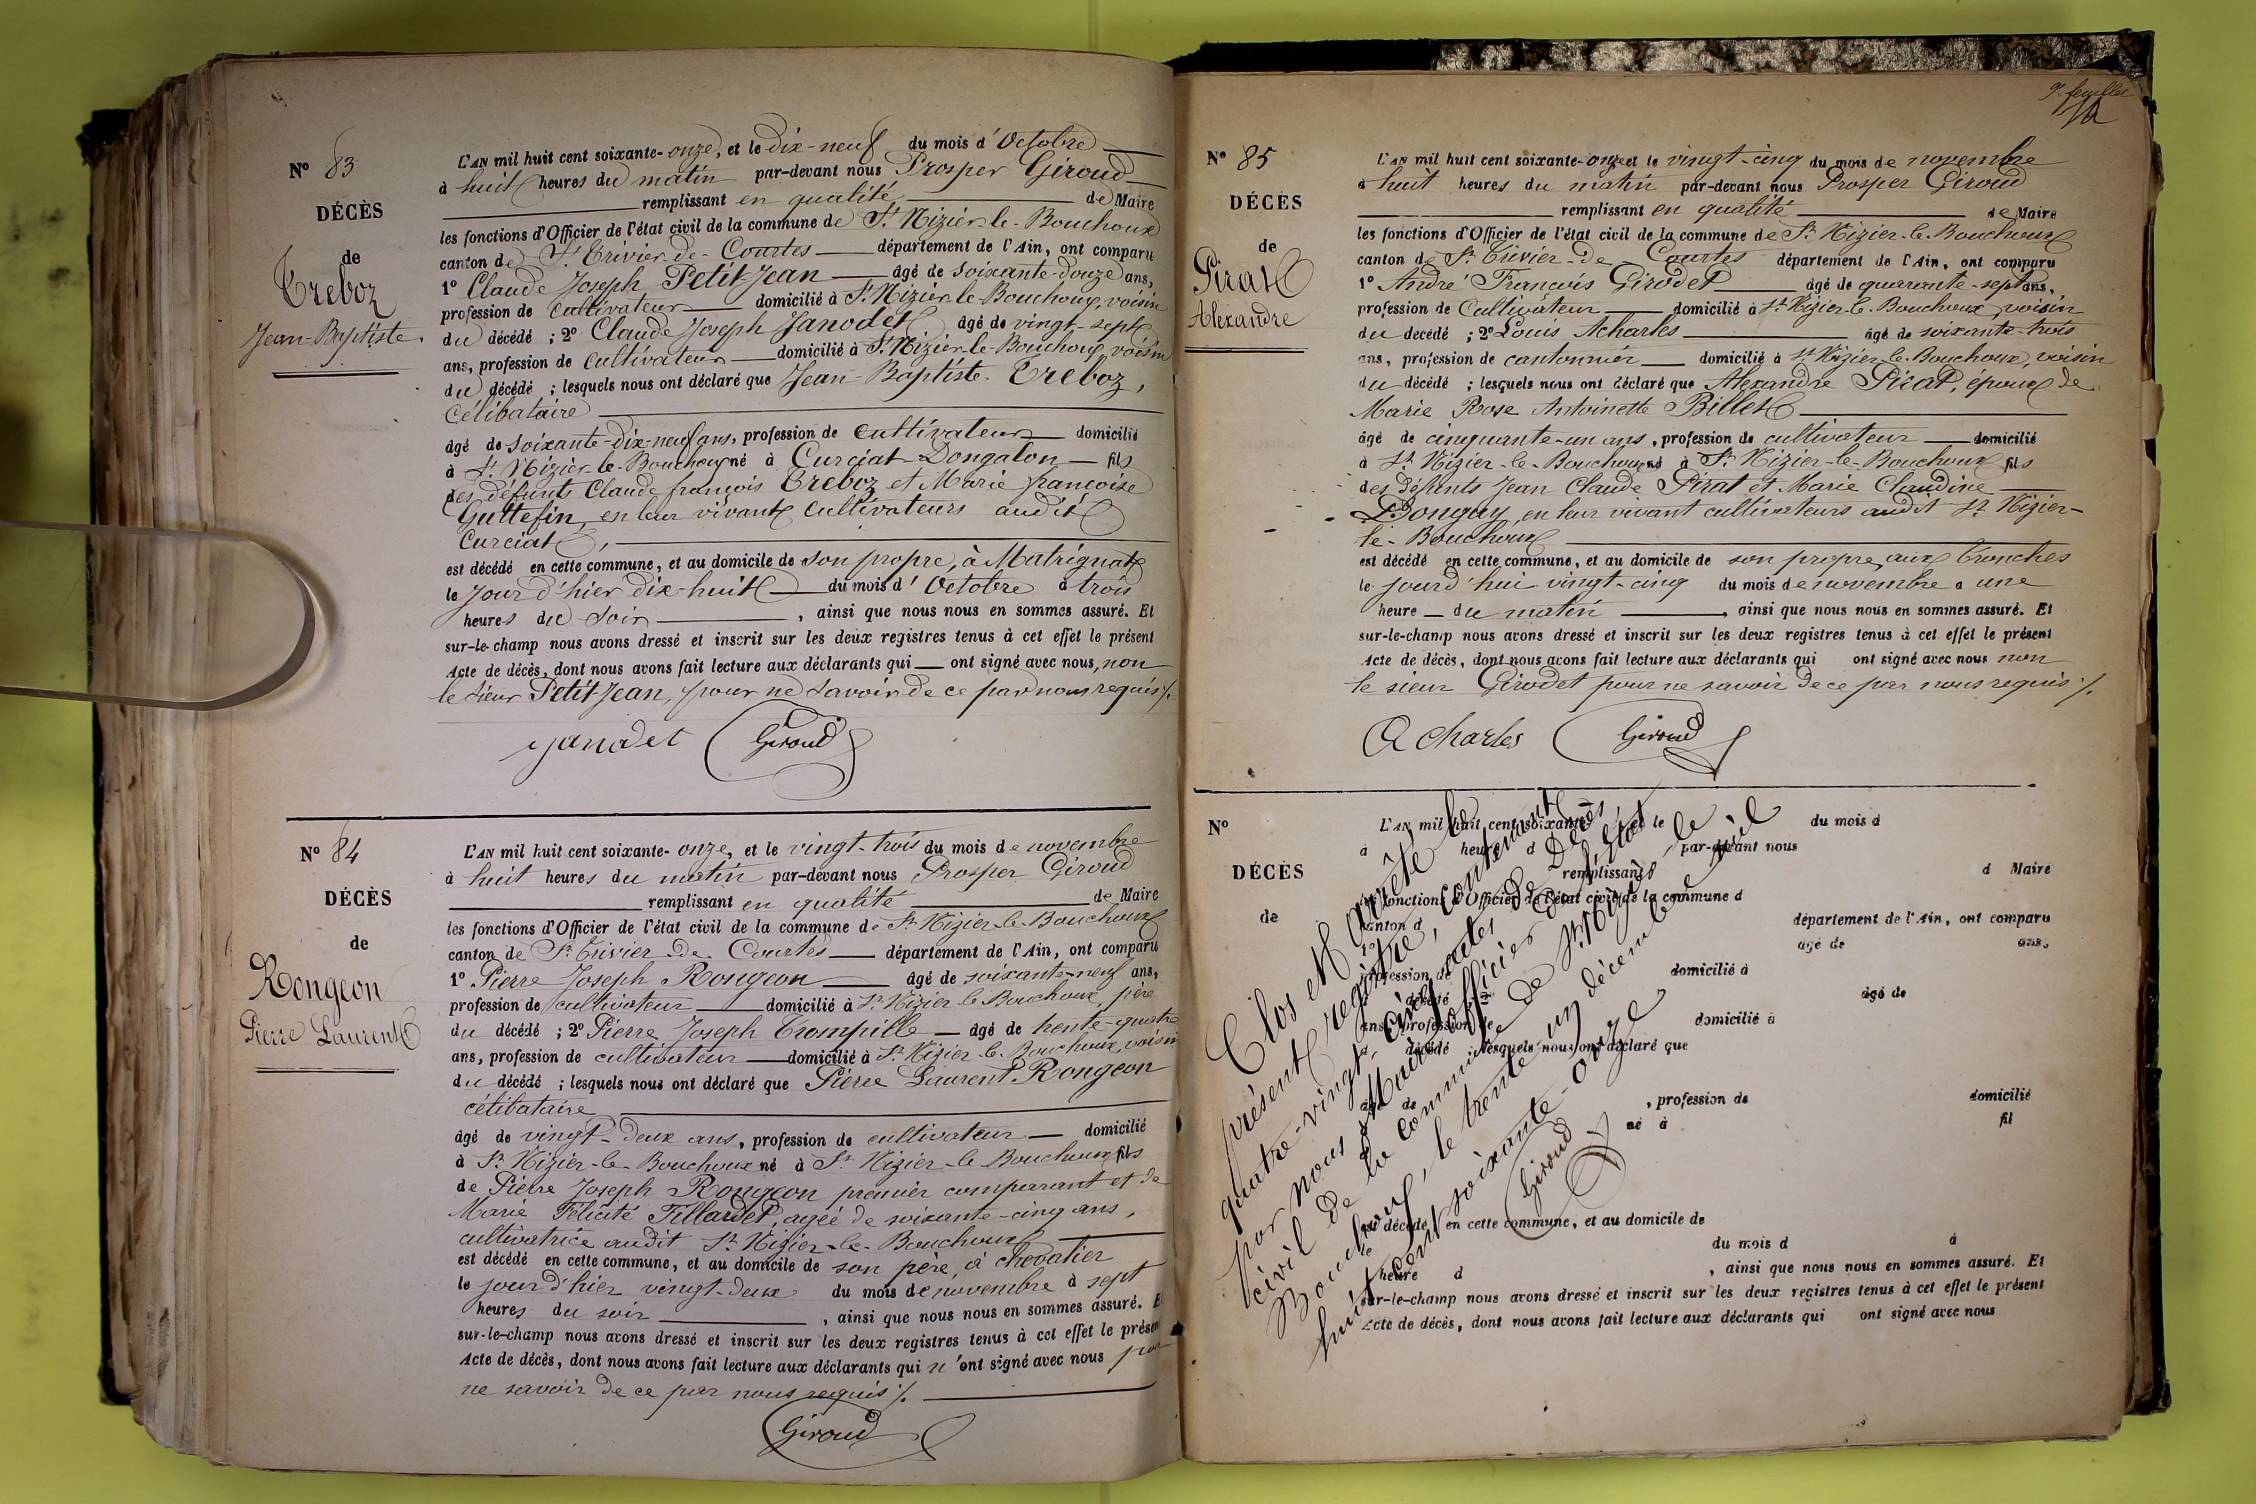 Nº 83
DÉCÈS
de
Treboz
Jean-Baptiste.
L'AN mil huit cent soixante-onze, et le dix-neuf du mois d'Octobre
à huit heures du matin par-devant nous Prosper Giroud
remplissant en qualité de Maire
les fonctions d'Officier de l'état civil de la commune de St Nizier-le-Bouchoux
canton de St Trivier-de-Courtes département de l'Ain, ont comparu
1º Claude Joseph Petitjean âgé de soixante-douze ans,
profession de cultivateur domicilié à St Nizier-le-Bouchoux, voisin
du décédé ; 2º Claude Joseph Janodet âgé de vingt-sept
ans, profession de cultivateur domicilié à St Nizier-le-Bouchoux, voisin
du décédé ; lesquels nous ont déclaré que Jean-Baptiste Treboz,
célibataire
âgé de soixante-dix-neuf ans, profession de cultivateur domicilié
à St Nizier-le-Bouchoux né à Curciat-Dongalon fils
des défunts Claude françois Treboz et Marie françoise
Guttefin, en leur vivant cultivateurs audit
Curciat,
est décédé en cette commune, et au domicile de son propre, à Matrignat
le jour d'hier dix-huit du mois d'Octobre à trois
heures du soir , ainsi que nous nous en sommes assuré. Et
sur-le-champ nous avons dressé et inscrit sur les deux registres tenus à cet effet le présent
Acte de décès, dont nous avons fait lecture aux déclarants qui ont signé avec nous, non
le sieur Petitjean, pour ne savoir de ce par nous requis ./.
Janodet Giroud
Nº 84
DÉCÈS
de
Rongeon
Pierre Laurent
L'AN mil huit cent soixante-onze, et le vingt-trois du mois de novembre
à huit heures du matin par-devant nous Prosper Giroud
remplissant en qualité de Maire
les fonctions d'Officier de l'état civil de la commune de St Nizier-le-Bouchoux
canton de St Trivier-de-Courtes département de l'Ain, ont comparu
1º Pierre Joseph Rongeon âgé de soixante-neuf ans,
profession de cultivateur domicilié à St Nizier-le-Bouchoux, père
du décédé ; 2º Pierre Joseph Trompille âgé de trente-quatre
ans, profession de cultivateur domicilié à St Nizier-le-Bouchoux, voisin
du décédé ; lesquels nous ont déclaré que Pierre Laurent Rongeon
célibataire
âgé de vingt-deux ans, profession de cultivateur domicilié
à St Nizier-le-Bouchoux né à St Nizier-le-Bouchoux fils
de Pierre Joseph Rongeon premier comparant et de
Marie Félicité Tillardet, agée de soixante-cinq ans,
cultivatrice audit St Nizier-le-Bouchoux
est décédé en cette commune, et au domicile de son père, à chevalier
le jour d'hier vingt-deux du mois de novembre à sept
heures du soir , ainsi que nous nous en sommes assuré. Et
sur-le-champ nous avons dressé et inscrit sur les deux registres tenus à cet effet le présent
Acte de décès, dont nous avons fait lecture aux déclarants qui n'ont signé avec nous pour
ne savoir de ce par nous requis ./.
Giroud
9e feuillet
Nº 85
DÉCÈS
de
Pirat
Alexandre
L'AN mil huit cent soixante-onze et le vingt-cinq du mois de novembre
à huit heures du matin par-devant nous Prosper Giroud
remplissant en qualité de Maire
les fonctions d'Officier de l'état civil de la commune de St Nizier-le-Bouchoux
canton de St Trivier-de-Courtes département de l'Ain, ont comparu
1º André François Girodet âgé de quarante-sept ans,
profession de Cultivateur domicilié à St Nizier-le-Bouchoux, voisin
du décédé ; 2º Louis Acharles âgé de soixante-trois
ans, profession de cantonnier domicilié à St Nizier-le-Bouchoux, voisin
du décédé ; lesquels nous ont déclaré que Alexandre Pirat, époux de
Marie Rose Antoinette Billet
âgé de cinquante-un ans, profession de cultivateur domicilié
à St Nizier-le-Bouchoux né à St Nizier-le-Bouchoux fils
des défunts Jean Claude Pirat et Marie Claudine
Donguy, en leur vivant cultivateurs audit St Nizier-
le-Bouchoux
est décédé en cette commune, et au domicile de son propre, aux Tronches
le jourd'hui vingt-cinq du mois de novembre à une
heure du matin , ainsi que nous nous en sommes assuré. Et
sur-le-champ nous avons dressé et inscrit sur les deux registres tenus à cet effet le présent
Acte de décès, dont nous avons fait lecture aux déclarants qui ont signé avec nous non
le sieur Girodet pour ne savoir de ce par nous requis ./.
Acharles Giroud
Nº
DÉCÈS
de
L'AN mil huit cent soixante- et le du mois d
à heure d par-devant nous
remplissant d Maire
les fonctions d'Officier de l'état civil de la commune d
canton d département de l'Ain, ont comparu
1º âgé de ans,
profession de domicilié à
décédé ; 2º âgé de
ans, profession de domicilié à
décédé ; lesquels nous ont déclaré que
âgé de , profession de domicilié
à né à fil
est décédé en cette commune, et au domicile de
le du mois d à
heure d , ainsi que nous nous en sommes assuré. Et
sur-le-champ nous avons dressé et inscrit sur les deux registres tenus à cet effet le présent
Acte de décès, dont nous avons fait lecture aux déclarants qui ont signé avec nous
Clos et arrêté le
présent registre, contenant
quatre-vingt-cinq actes de Décès
par nous Maire officier de l'état
civil de la commune de St Nizier-le-
Bouchoux, le trente un décembre mil
huit cent soixante-onze
Giroud